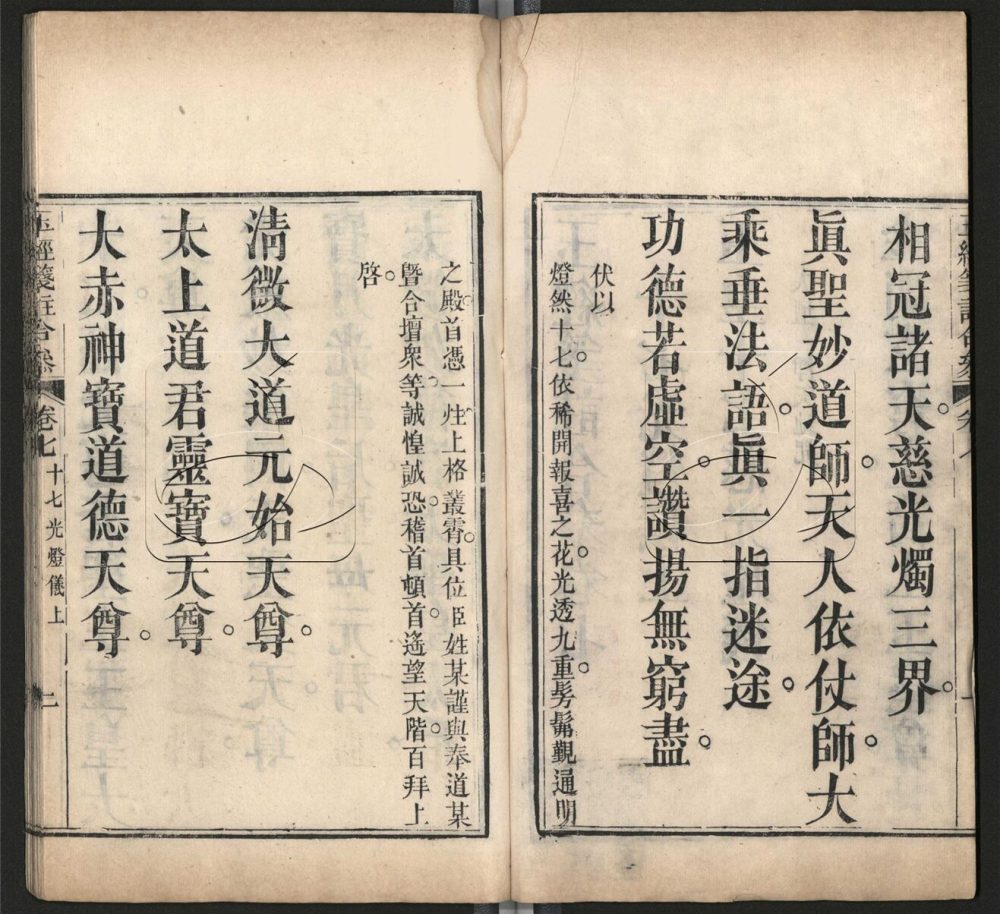 相冠諸天。慈光燭三界。
眞聖妙道師。天人依仗師。大
乘垂法語。眞一指迷途。
功德若虛空。讚揚無窮盡。
伏以
燈然十七。依稀開報喜之花。光透九重。髣髴覲通明
之殿。首憑一炷。上格叢霄。具位臣姓某。謹與奉道某
曁合壇衆等。誠惶誠恐。稽首頓首。遙望天階。百拜上
啓。
淸微大道元始天尊。
太上道君靈寶天尊。
大赤神寶道德天尊。
玉經箋註合叅 卷七 十七光燈儀上 二